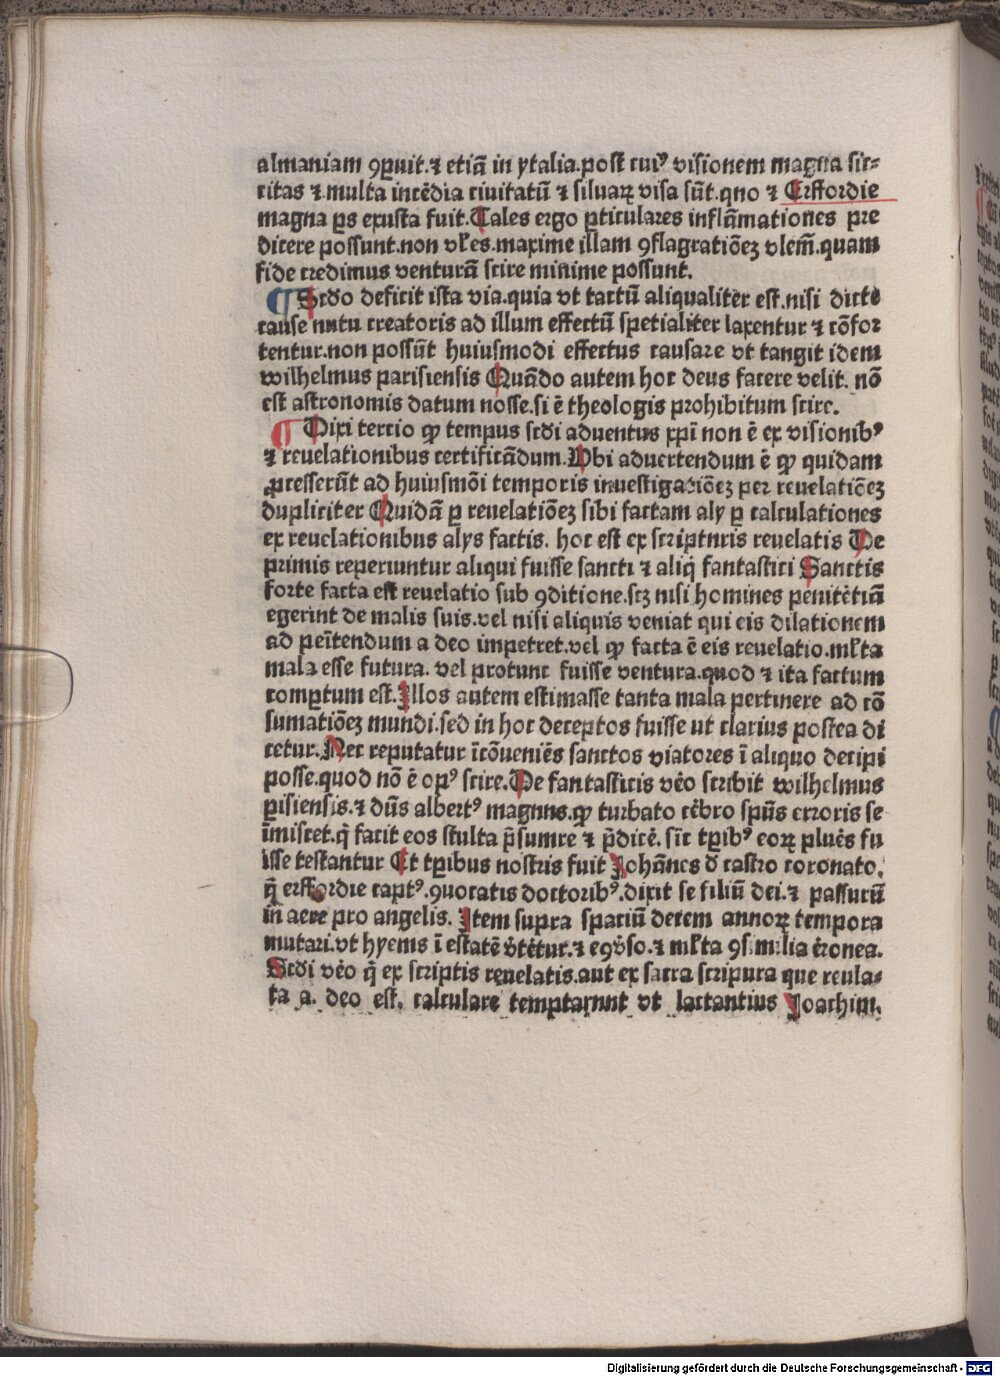 almaniam ꝯꝑuit.⁊ etiā in ytalia.post cuiꝰ visionem magna sic⸗
citas ⁊ multa incēdia ciuitatū ⁊ siluaꝝ visa sūt.qño ⁊ Erffordie
magna ꝑs exusta fuit.Tales ergo ꝑticulares inflāmationes pre
dicere possunt.non vłes.maxime illam ꝯflagratiōeꝫ vlem̄.quam
fide credimus venturā scire minime possunt.
¶ Scdo deficit ista via.quia vt tactū aliqualiter est.nisi dicte
cause nutu creatoris ad illum effectū spetialiter laxentur ⁊ cōfor
tentur.non possūt huiusmodi effectus causare vt tangit idem
wilhelmus parisiensis Quādo autem hoc deus facere velit. nō
est astronomis datum nosse.si ē theologis prohibitum scire.
¶ Dixi tercio ꝙ tempus scdi aduentus xp̄i non ē ex visionibꝰ
⁊ reuelationibus certificādum.Vbi aduertendum ē ꝙ quidam
ꝓcesserūt ad huiusmōi temporis inuestigatiōeꝫ per reuelatiōeꝫ
dupliciter Quidā ꝑ reuelatiōeꝫ sibi factam aly ꝑ calculationes
ex reuelationibus alys factis. hoc est ex scripturis reuelatis De
primis reperiuntur aliqui fuisse sancti ⁊ aliq̄ fantastici Sanctis
forte facta est reuelatio sub ꝯditione.scꝫ nisi homines penitētiā
egerint de malis suis.vel nisi aliquis veniat qui eis dilationem
ad peītendum a deo impetret.vel ꝙ facta ē eis reuelatio.młta
mala esse futura. vel protunc fuisse ventura.quod ⁊ ita factum
comꝑtum est.Illos autem estimasse tanta mala pertinere ad cō
sumatiōeꝫ mundi.sed in hoc deceptos fuisse ut clarius postea di
cetur.Nec reputatur īcōueniēs sanctos viatores ī aliquo decipi
posse.quod nō ē opꝰ scire.De fantasticis vēo scribit wilhelmus
ꝑisiensis.⁊ dūs albertꝰ magnus.ꝙ turbato cēbro spūs erroris se
īmiscet.q̄ facit eos stulta p̄sumre ⁊ p̄dicē. sīc tꝑibꝰ eoꝝ plués fu
isse testantur Et tꝑibus nostris fuit Johānes ď castro coronato.
q̄ erffordie captꝰ.ꝯuocatis doctoribꝰ.dixit se filiū dei.⁊ passurū
in aere pro angelis. Item supra spaciū decem annoꝝ tempora
mutari.vt hyems ī estatē v̄tētur.⁊ eꝯv̄so.⁊ młta ꝯsimilia ēronea.
Scdi vēo q̄ ex scriptis reuelatis.aut ex sacra scripura que reula⸗
ta a. deo est. calculare temptarunt vt lactantius Joachim.
Digitalisierung gefördert durch die Deutsche Forschungsgemeinschaft - DFG